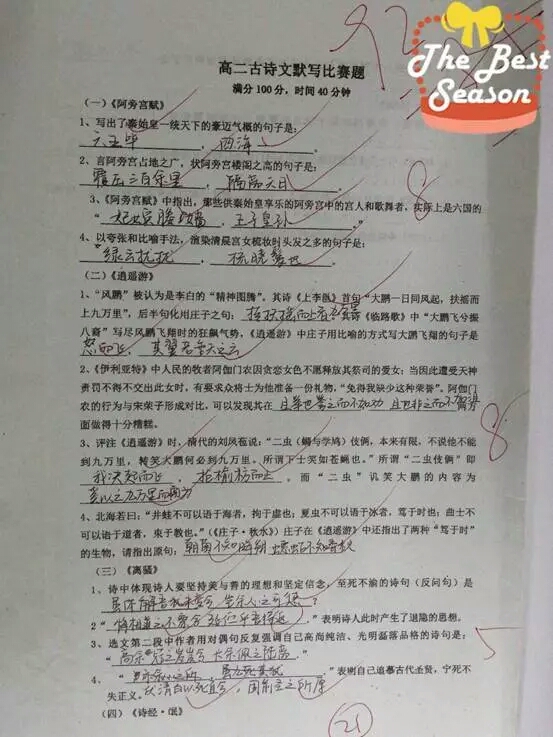 The Best
Season
高二古诗文默写比赛题
满分100分，时间40分钟
（一）《阿旁宫赋》
1、写出了秦始皇一统天下的豪迈气概的句子是：
六王毕，四海
2、言阿旁宫占地之广，状阿旁宫楼阁之高的句子是：
覆压三百余里，隔离天日
3、《阿旁宫赋》中指出，那些供秦始皇享乐的阿旁宫中的宫人和歌舞者，实际上是六国的
“妃嫔媵嫱，王子皇孙”
8
4、以夸张和比喻手法，渲染清晨宫女梳妆时头发之多的句子是：
“绿云扰扰，梳晓鬟也”
（二）《逍遥游》
1、“风鹏”被认为是李白的“精神图腾”。其诗《上李邕》首句“大鹏一日同风起，扶摇而
上九万里”，后半句化用庄子之句：抟扶摇而上者九万里《临路歌》中“大鹏飞兮振
八裔”写尽风鹏飞翔时的狂飙气势，《逍遥游》中庄子用比喻的方式写大鹏飞翔的句子是
怒而飞，其翼若垂天之云
2、《伊利亚特》中人民的牧者阿伽门农因贪恋女色不愿释放其祭司的爱女；当因此遭受天神
责罚不得不交出此女时，有要求众将士为他准备一份礼物，“免得我缺少这种荣誉”。阿伽门
农的行为与宋荣子形成对比，可以发现其在且举世誉之而不加劝 且举世非之而不加沮方
面做得十分糟糕。
8
3、评注《逍遥游》时，清代的刘凤苞说：“二虫（蜩与学鸠）伎俩，本来有限，不说他不能
到九万里，转笑大鹏何必到九万里。所谓下士笑如苍蝇也。”所谓“二虫伎俩”即
我决起而飞，抢榆枋而止。而“二虫”讥笑大鹏的内容为
奚以之九万里而南为
4、北海若曰：“井蛙不可以语于海者，拘于虚也；夏虫不可以语于冰者，笃于时也；曲士不
可以语于道者，束于教也。”（《庄子·秋水》）庄子在《逍遥游》中还指出了两种“笃于时”
的生物，请指出原句：朝菌不知晦朔 蟪蛄不知春秋
（三）《离骚》
1、诗中体现诗人要坚持美与善的理想和坚定信念，至死不渝的诗句（反问句）是
虽体解吾犹未变兮 岂余心之可惩？
2“ ”表明诗人此时产生了退隐的思想。
3、选文第二段中作者用对偶句反复强调自己高尚纯洁、光明磊落品格的诗句是：
“高余冠之岌岌兮 长余佩之陆离”
5
4、“ ”表明自己追慕古代圣贤，宁死不
失正义。伏清白以死直兮，固前圣之所厚
（四）《诗经·氓》
21